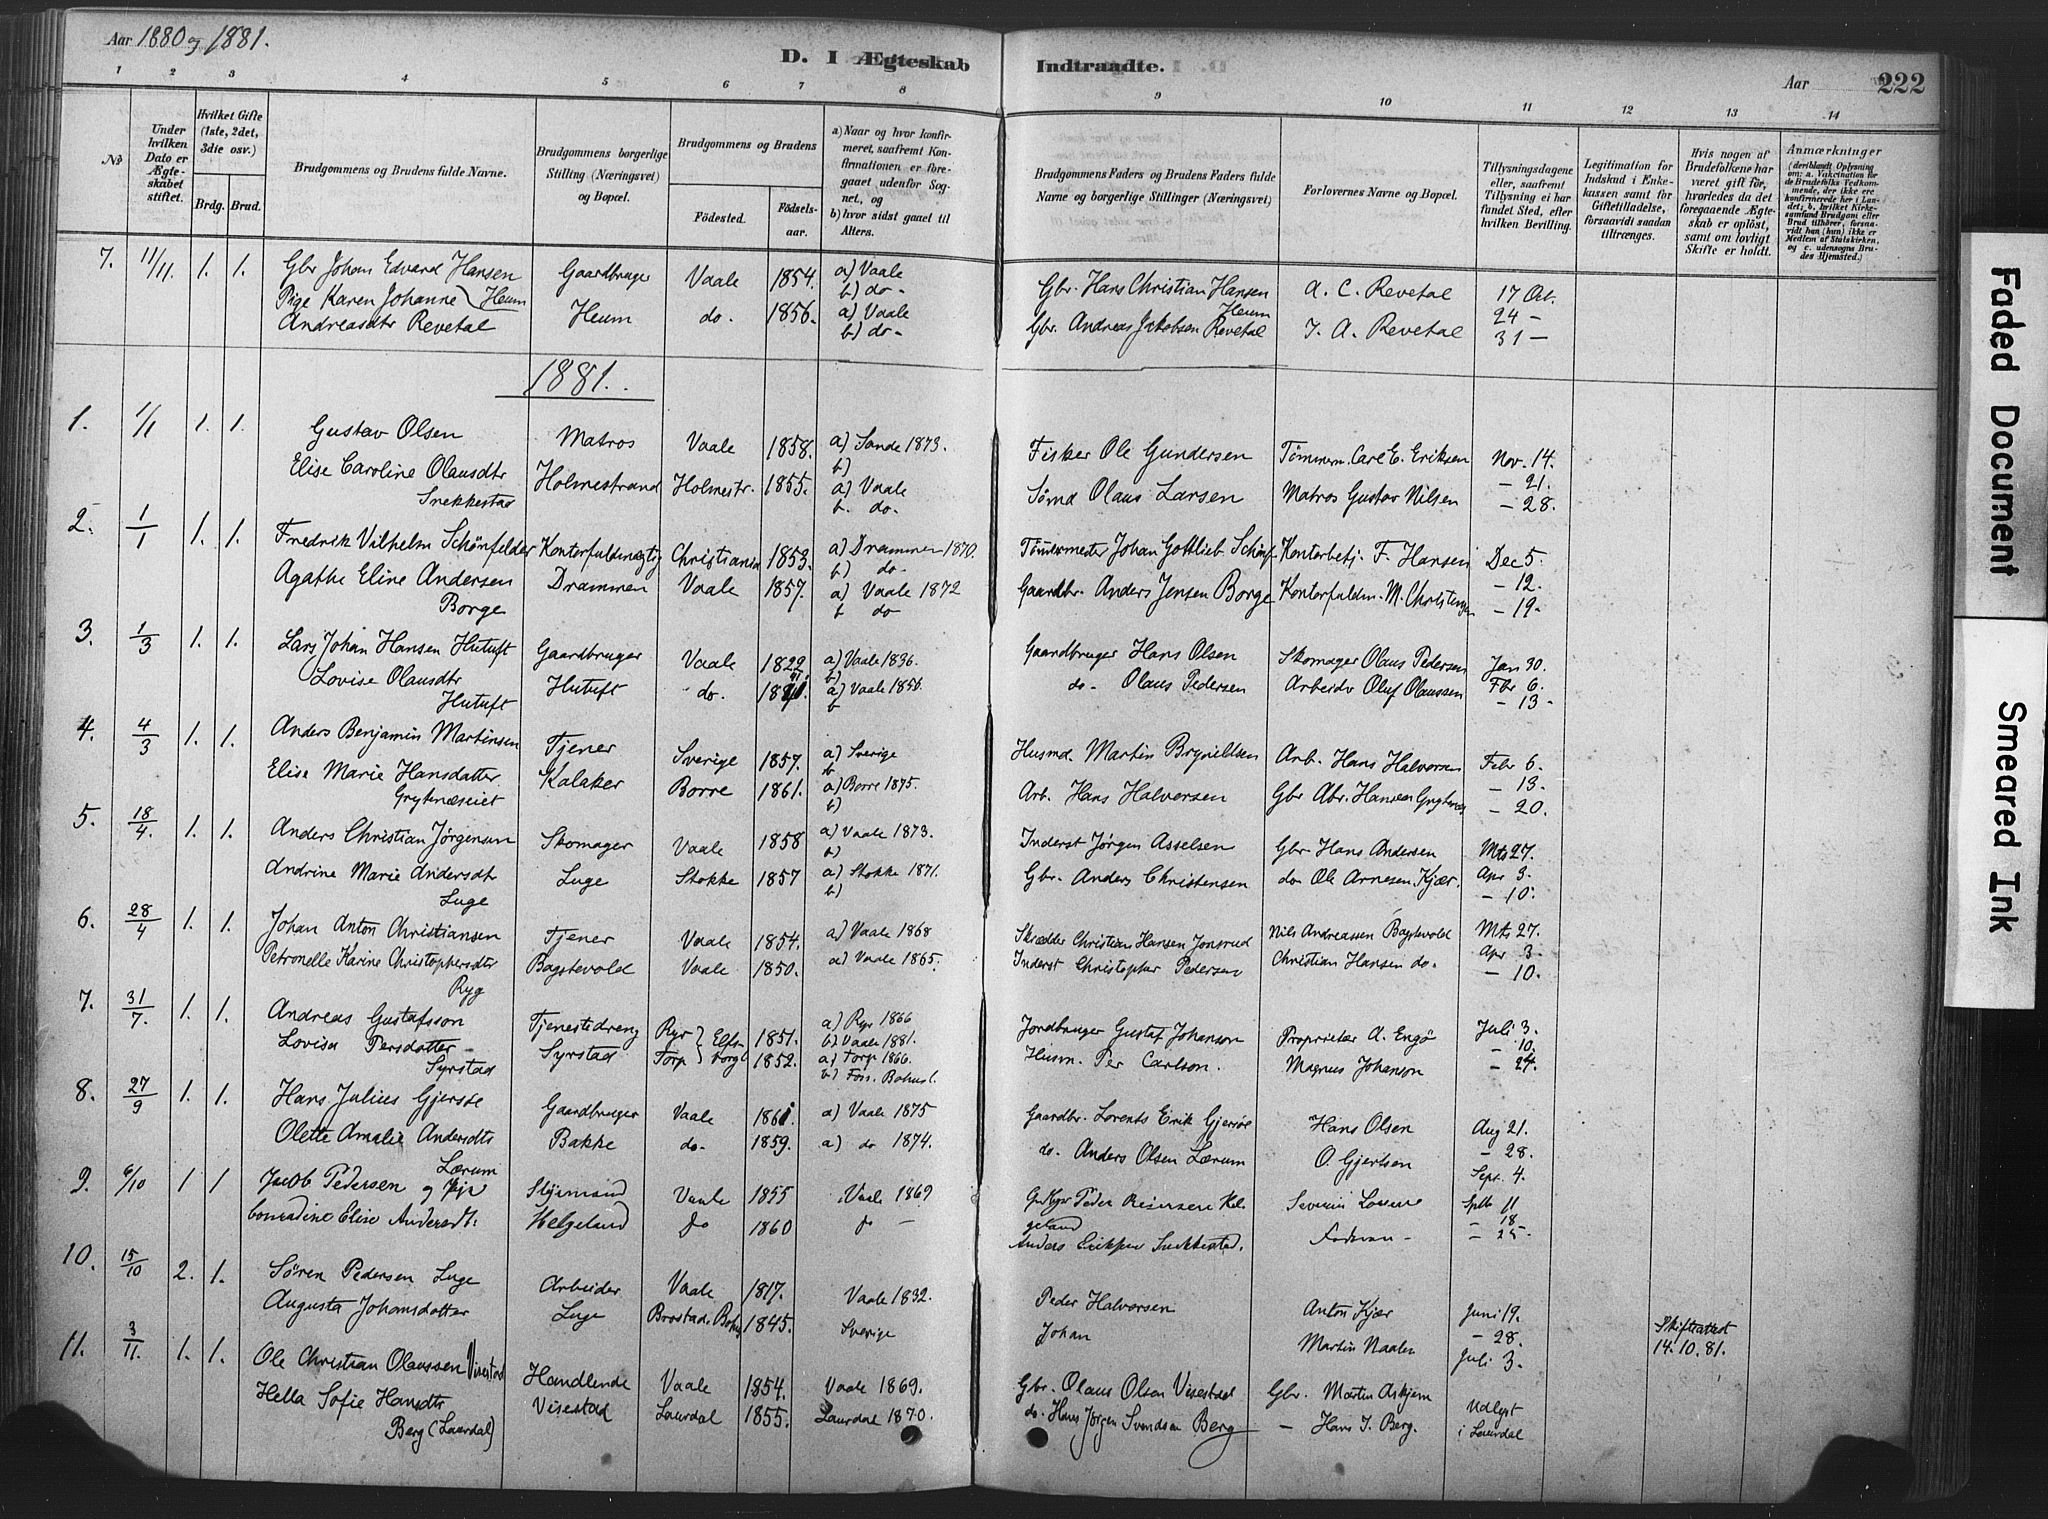 Aar 1880 og 1881.
D. I Ægteskab Indtraadte.
Aar 222
1 2 3 4 5 6 7 8 9 10 11 12 13 14
No
Under hvilken Dato er Ægteskabet stiftet.
Hvilket Gifte (1ste, 2det, 3die osv.)
Brdg. Brud.
Brudgommens og Brudens fulde Navne.
Brudgommens borgerlige Stilling (Næringsvei) og Bopæl.
Brudgommens og Brudens
Födested. Födselsaar.
a) Naar og hvor konfirmeret, saafremt Konfirmationen er foregaaet udenfor Sognet, og
b) hvor sidst gaaet til Alters.
Brudgommens Faders og Brudens Faders fulde Navne og borgerlige Stillinger (Næringsvei)
Forlovernes Navne og Bopæl.
Tillysningsdagene eller, saafremt Tillysning ei har fundet Sted, efter hvilken Bevilling.
Legitimation for Indskud i Enkekassen samt for Giftetilladelse, forsaavidt saadan tiltrænges.
Hvis nogen af Brudefolkene har været gift før, hvorledes da det foregaaende Ægteskab er oplöst, samt om lovligt Skifte er holdt.
Anmærkninger
(deriblandt Oplysning om: a. Vakcination for de Brudefolks Vedkommende, der ikke ere konfirmerede her i Landet; b. hvilket Kirkesamfund Brudgom eller Brud tilhörer, forsaavidt han (hun) ikke er Medlem af Statskirken, og c. udensogns Brudes Hjemsted.)
7. 11/11. 1. 1. Gbr Johan Edvard Hansen Heum Gaardbruger Vaale 1854. a) Vaale b) do- Gbr. Hans Christian Hansen Heum A. C. Revetal 17 Oct.
Pige Karen Johanne Andreasdtr Revetal Heum do. 1856. a) Vaale b) do- Gbr. Andreas Jakobsen Revetal J. A. Revetal 24 - 31 -
1881.
1. 1/1 1. 1. Gustav Olsen Matros Vaale 1858. a) Sande 1873. b) Fisker Ole Gundersen Tømmerm. Carl E. Eriksen Nov. 14.
Elise Caroline Olausdtr Snekkestad Holmestrand Holmestr. 1855. a) Vaale b. do. Sømd Olaus Larsen Matros Gustav Nilsen - 21. - 28.
2. 1/1 1. 1. Fredrik Vilhelm Schönfelder Kontorfuldmægtig Christiania 1853. a) Drammen 1870. b) do- Tømmermester Johan Gottlieb Schönf Kontorbetj. F. Hansen Dec 5.
Agathe Eline Andersen Borge Drammen Vaale 1857. a) Vaale 1872 b do Gaardbr. Anders Jensen Borge Kontorfuldm. M. Christensen - 12. - 19.
3. 1/3 1. 1. Lars Johan Hansen Hutuft Gaardbruger Vaale 1822 a) Vaale 1836. b) Gaardbruger Hans Olsen Skomager Olaus Pedersen Jan 30.
Lovise Olausdtr Hutuft Hutuft do. a) Vaale 1856. b do- Olaus Pedersen Arbeider Oluf Olaussen Fbr 6. - 13-
4. 4/3 1. 1. Anders Benjamin Martinsen Tjener Sverige 1857. a) Sverige b Husmd. Martin Brynildsen Arb. Hans Halvorsen Febr 6.
Elise Marie Hansdatter Grytenæseiet Kalaker Borre 1861. a) Borre 1875. b) Arb. Hans Halversen Gbr Abr. Hansen Grytenæs - 13. - 20.
5. 18/4. 1. 1. Anders Christian Jørgensen Skomager Vaale 1858 a) Vaale 1873. b) Inderst Jørgen Asselsen Gbr Hans Andersen Mts 27.
Andrine Marie Andersdtr Luge Luge Stokke 1857 a) Stokke 1871. b) Gbr. Anders Christensen do Ole Arnesen Kjær. Apr 3. - 10.
6. 28/4 1. 1. Johan Anton Christiansen Tjener Vaale 1854. a) Vaale 1868 Skrædder Christian Hansen Jonsrud Nils Andreassen Bagstevold Mts 27.
Petronelle Karine Christophersdtr Ryg Bagstevold Vaale 1850. a) Vaale 1865. Inderst Christopher Pedersen Christian Hansen do. Apr 3. - 10.
7. 31/7. 1. 1. Andreas Gustafsson Tjenestedreng Ryr 1851. a) Ryr 1866 b) Vaale 1881. Jordbruger Gustaf Johanson Proprietær A. Engö Juli 3.
Lovisa Persdotter Syrstad Syrstad Torp Elfsborgl 1852. a) Torp 1866. b) Fos. Bohusl. Husm. Per Carlson. Magnus Johanson - 10. - 24.
8. 27/9 1. 1. Hans Julius Gjersøe Gaardbruger Vaale 1861. a) Vaale 1875 Gaardbr. Lorents Erik Gjersøe Hans Olsen Aug 21.
Olette Amalie Andersdtr Lærum Bakke do- 1859. a) do 1874. do. Anders Olsen Lærum O. Gjertsen - 28. Sept. 4.
9. 6/10 1 1 Jacob Pedersen og Pige Vaale 1855 Vaale 1869 Peder Helgeland Severin Spt 11
Conradine Elise Andersdt: Helgeland do 1860 do - Anders Snekkestad. - 18 - 25-
10. 15/10 2. 1. Sören Pedersen Luge Arbeider Vaale 1817. Vaale 1832. Peder Halvorsen Anton Kjær Juni 19.
Augusta Johansdotter Luge Brastad. Bohus 1845. Sverige Johan Martin Naalen - 28. Juli 3. Skifteattest 14.10.81.
11. 3/11. 1. 1. Ole Christian Olaussen Visestad Handlende Vaale 1854. Vaale 1869. Gbr. Olaus Olsen Visestad Gbr. Martin Askjem Udlyst
Hella Sofie Hansdtr Berg (Laurdal) Visestad Laurdal 1855. Laurdal 1870. do. Hans Jørgen Svendsen Berg - Hans J. Berg. i Laurdal
Faded Document
Smeared Ink